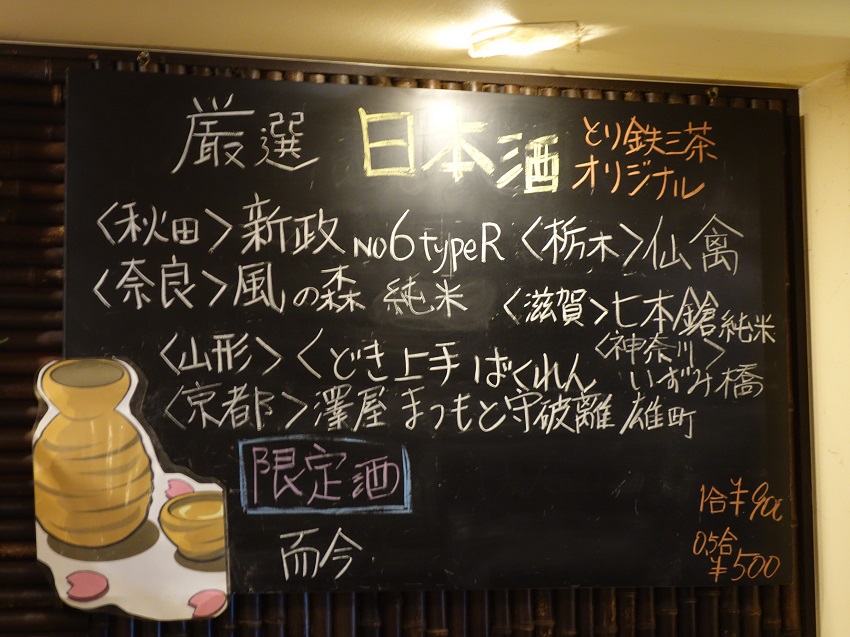 厳選 日本酒 とり鉄三茶
オリジナル
〈秋田〉新政 NO6typeR 〈栃木〉仙禽
〈奈良〉風の森 純米 〈滋賀〉七本鎗純米
〈山形〉くどき上手 ばくれん 〈神奈川〉いずみ橋
〈京都〉澤屋 まつもと守破離 雄町
限定酒
而今
1合¥
0.5合
¥500